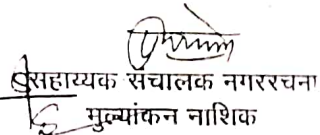 सहाय्यक संचालक नगररचना
मुल्यांकन नाशिक